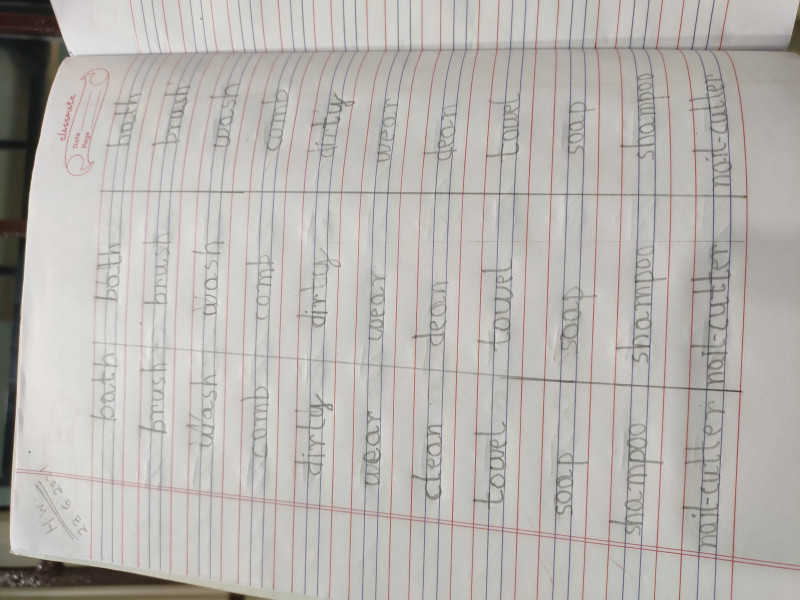 classmate
Date
Page
H.W
bath bath bath
brush brush brush
Wash Wash wash
comb comb comb
dirty dirty dirty
wear wear wear
clean clean clean
towel towel towel
soap soap soap
shampoo shampoo shampoo
nail-cutter nail-cutter nail-cutter